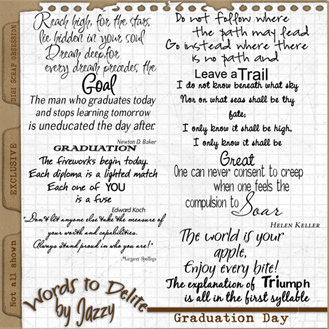 Reach high, for the stars
lie hidden in your soul
Dream deep, for
every dream precedes the
Goal
The man who graduates today
and stops learning tomorrow
is uneducated the day after
Newton D. Baker
GRADUATION
The fireworks begin today.
Each diploma is a lighted match
Each one of YOU
is a fuse
Edward Koch
"Don't let anyone else take the measure of
your worth and capabilities.
Always stand proud in who you are!"
Do not follow where
the path may lead
Go instead where there
is no path and
Leave a Trail
I do not know beneath what sky
Nor on what seas shall be thy
fate;
I only know it shall be high,
I only know it shall be
Great
One can never consent to creep
when one feels the
compulsion to Soar
HELEN KELLER
The world is your
apple,
Enjoy every bite!
The explanation of Triumph
is all in the first syllable
DIGI SCRAP OBSESSION
EXCLUSIVE
Not all shown
Words to Delite
by Jazzy
Graduation Day